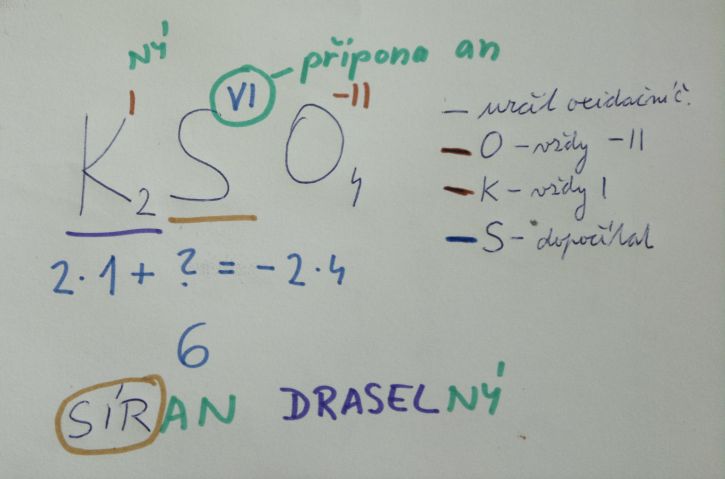 NÝ přípona an
I VI -II
K2 S O4
– určit oxidační č.
– O – vždy -II
– K – vždy I
– S – dopočítat
2·1 + ? = -2·4
6
SÍRAN DRASELNÝ